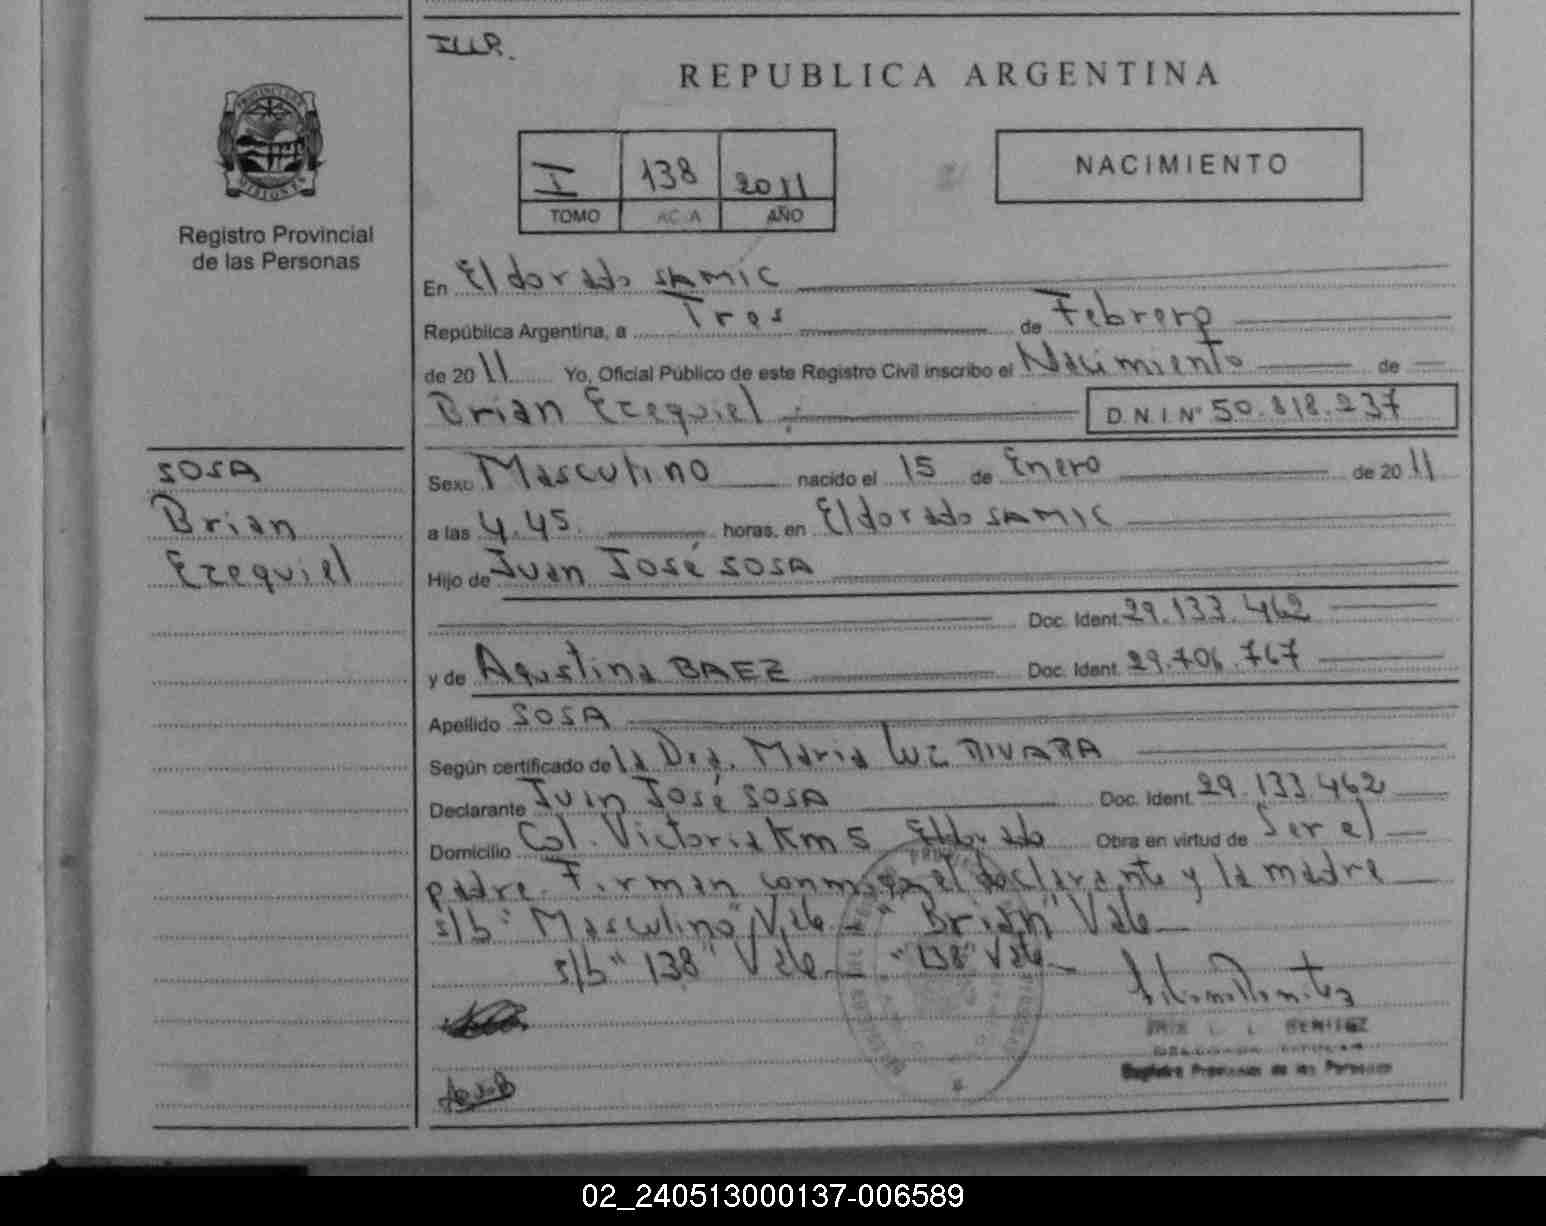 I.LLP.
REPUBLICA ARGENTINA
I 138 2011
TOMO AC A AÑO
NACIMIENTO
Registro Provincial
de las Personas
En Eldorado SAMIC
República Argentina, a Tres de Febrero
de 2011 Yo, Oficial Público de este Registro Civil inscribo el Nacimiento de
Brian Ezequiel D.N.I. N° 50.818.237
SOSA
Brian
Ezequiel
Sexo Masculino nacido el 15 de Enero de 2011
a las 4.45. horas, en Eldorado SAMIC
Hijo de Juan José SOSA
Doc. Ident. 29.133.462
y de Agustina BAEZ Doc. Ident. 29.706.767
Apellido SOSA
Según certificado de la Dra. Maria Luz RIVARA
Declarante Juan José SOSA Doc. Ident. 29.133.462
Domicilio Col. Victoria Km 5 Eldorado Obra en virtud de Ser el
padre. Firman conmigo el declarante y la madre
s/b "Masculino" Vale "Brian" Vale
s/b "138" Vale "138" Vale
BENITEZ
DELEGADA TITULAR
Registro Provincial de las Personas
02_240513000137-006589